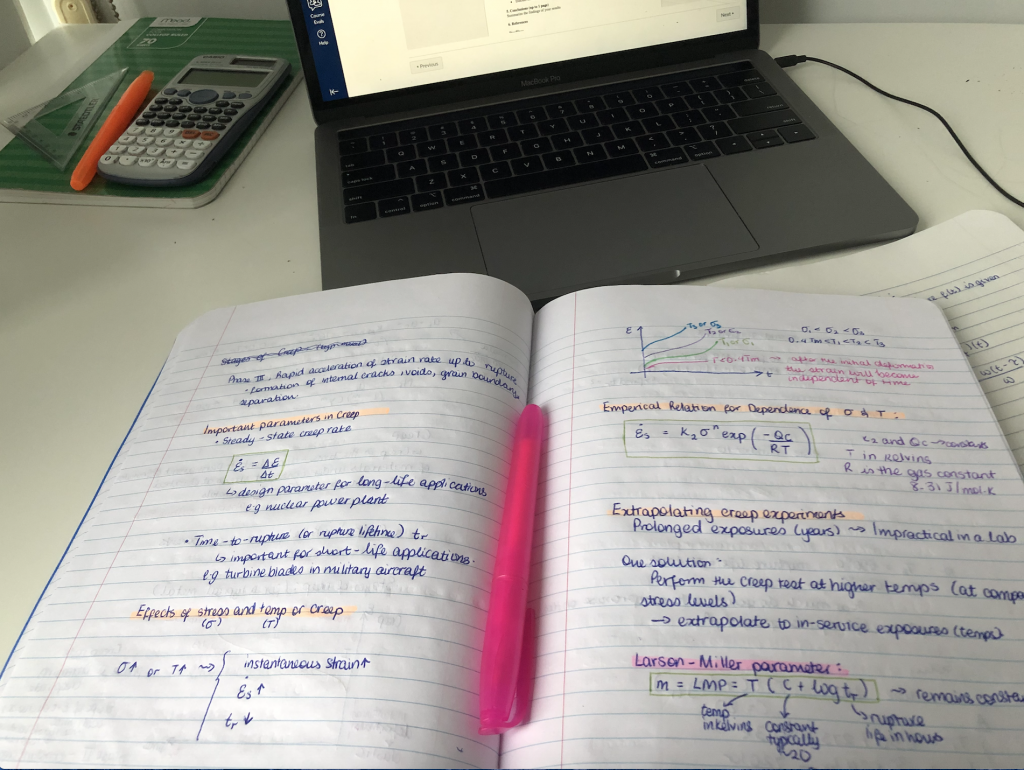 Course
Evals
Help
5. Conclusions (up to 1 page)
6. References
< Previous
Next >
MacBook Pro
CASIO
Stages of Creep
Phase III. Rapid acceleration of strain rate up to rupture
• formation of internal cracks, voids, grain boundary
separation.
Important parameters in Creep
• Steady-state creep rate
ε̇s = Δε/Δt
↳ design parameter for long-life applications
e.g nuclear power plant
• Time-to-rupture (or rupture lifetime) tr
↳ important for short-life applications.
e.g turbine blades in military aircraft
Effects of stress and temp or Creep
(σ) (T)
σ↑ or T↑ ⇝ { instantaneous strain↑
ε̇s ↑
tr ↓
ε
T3 or σ3
T2 or σ2
T1 or σ1
t
σ1 < σ2 < σ3
0.4Tm<T1<T2<T3
T<0.4Tm → after the initial deformation
the strain will become
independent of time
Emperical Relation for Dependence of σ & T:
ε̇s = K2σⁿ exp(-Qc/RT)
K2 and Qc → constants
T in Kelvins
R is the gas constant
8.31 J/mol.K
Extrapolating creep experiments
Prolonged exposures (years) ⇝ Impractical in a lab
One solution:
Perform the creep test at higher temps (at
stress levels)
→ extrapolate to in-service exposures (temps)
Larson-Miller parameter:
m = LMP = T (C + log tr) → remains
temp
in kelvins
constant
typically
~20
rupture
life in hours
is given